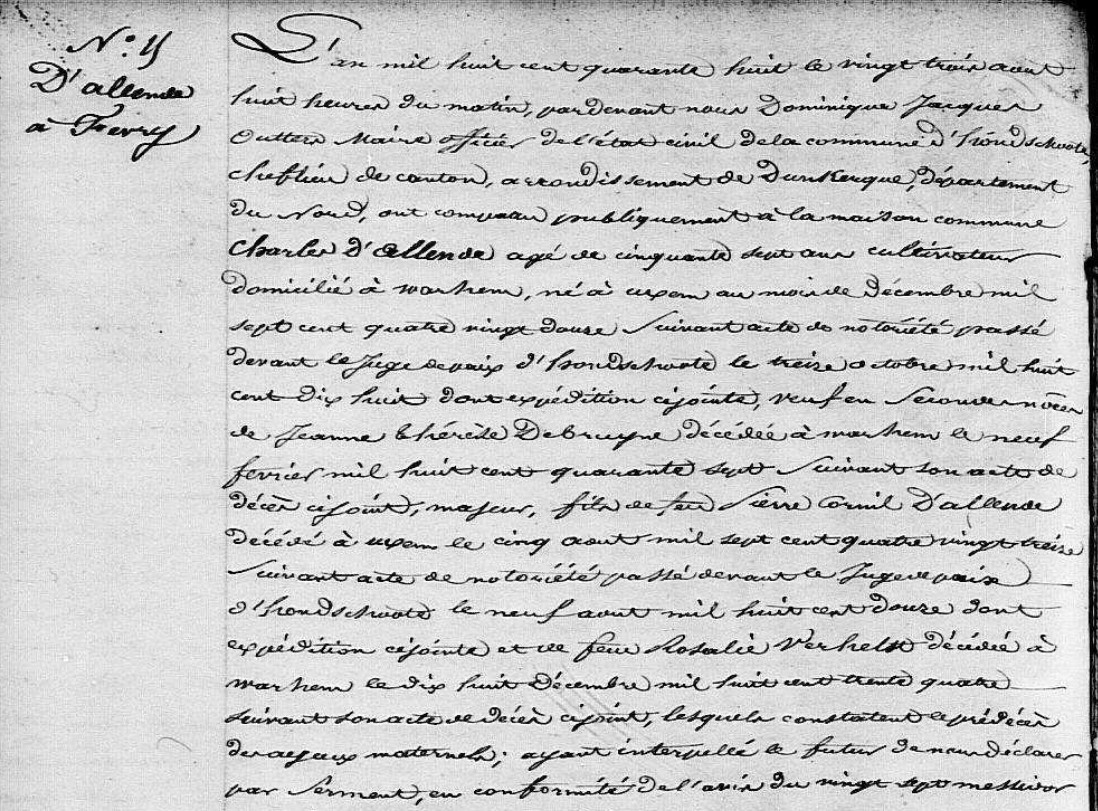 N.° 15
D'allende
à Ferry
L'an mil huit cent quarante huit le vingt trois aout
huit heures du matin, pardevant nous Dominique Jacques
Outters Maire officier de l'état civil de la commune d'hondschoote,
chef lieu de canton, arrondissement de Dunkerque, département
du Nord, ont comparu publiquement à la maison commune
Charles D'allende agé de cinquante sept ans cultivateur
domicilié à warhem, né à uxem au mois de Décembre mil
sept cent quatre vingt douze suivant acte de notoriété passé
devant le Juge de paix d'hondschoote le treize octobre mil huit
cent dix huit dont expédition cijointe, veuf en secondes noces
de Jeanne thérèse Debruyne décédée à warhem le neuf
fevrier mil huit cent quarante sept suivant son acte de
décès cijoint, majeur, fils de feu Pierre Cornil D'allende
décédé à uxem le cinq aout mil sept cent quatre vingt treize
suivant acte de notoriété passé devant le Juge de paix
d'hondschoote le neuf aout mil huit cent douze dont
expédition cijointe et de feue Rosalie Verhelst décédée à
warhem le dix huit Décembre mil huit cent trente quatre
suivant son acte de décès cijoint, lesquels constatent le prédécès
des ayeux maternels; ayant interpellé le futur de nous déclarer
par serment, en conformité de l'avis du vingt sept messidor